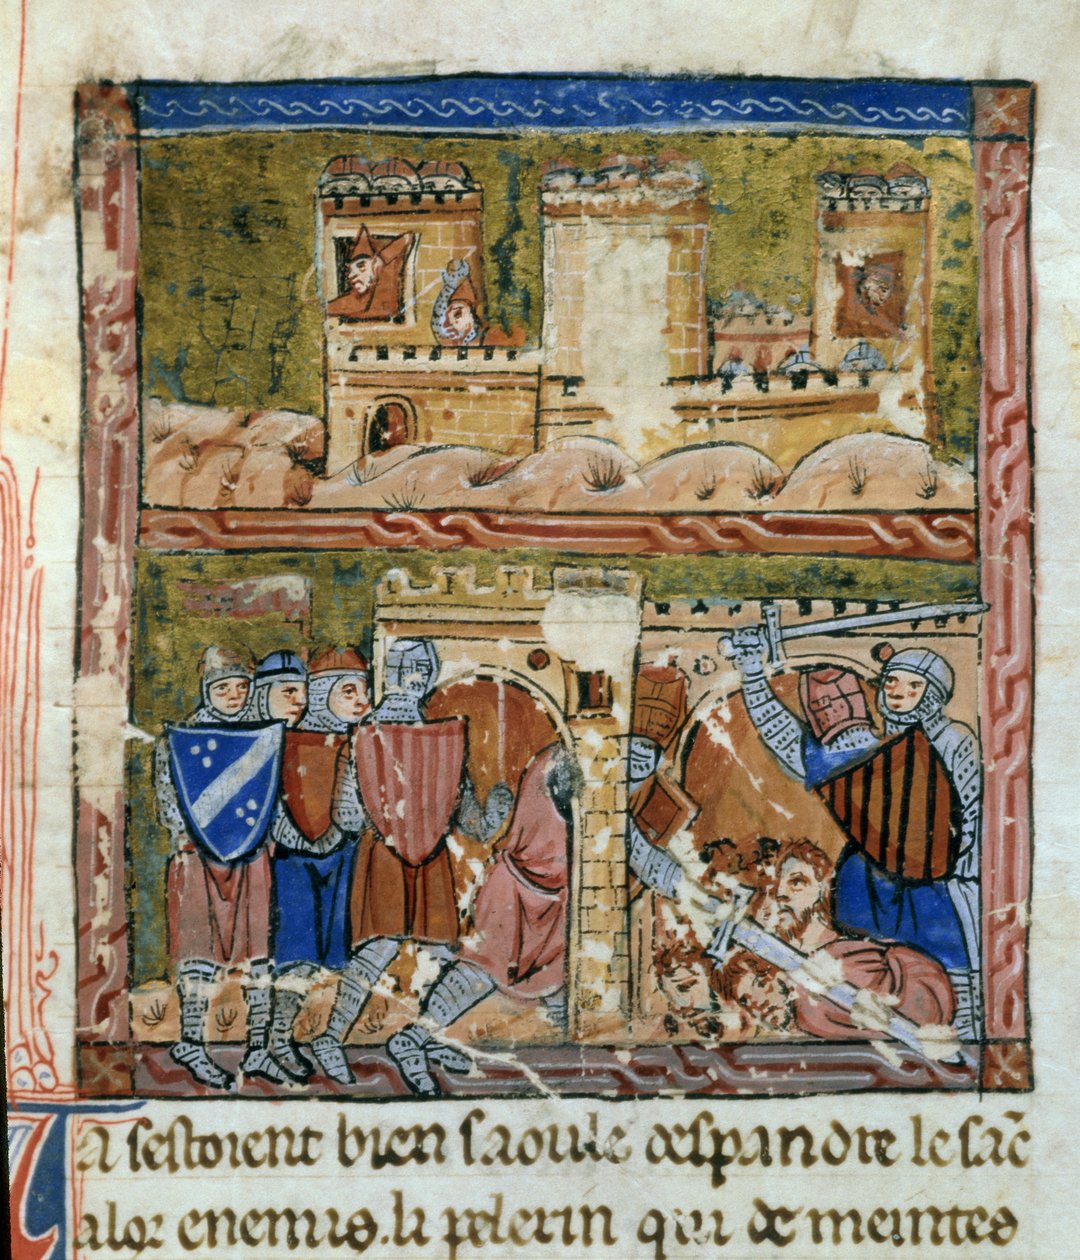 Ja sestoient bien saoule despandre le sāc
alor enemis. li pelerin qui de meintes